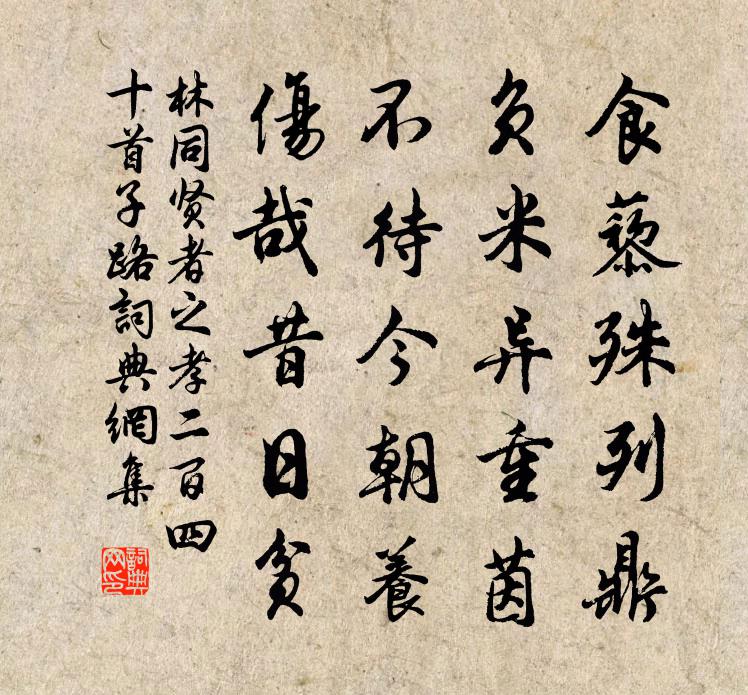 食藜殊列鼎
负米异重茵
不待今朝養
傷哉昔日贫
林同贤者之孝二百四
十首子路詞典網集
詞典网印